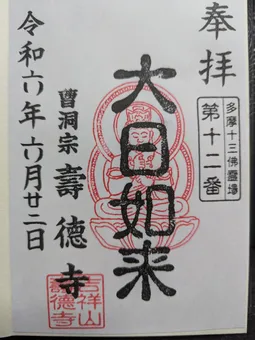 奉拝
多摩十三佛霊場
第十二番
大日如来
曹洞宗 壽徳寺
吉祥山
壽徳寺
令和六年六月廿二日